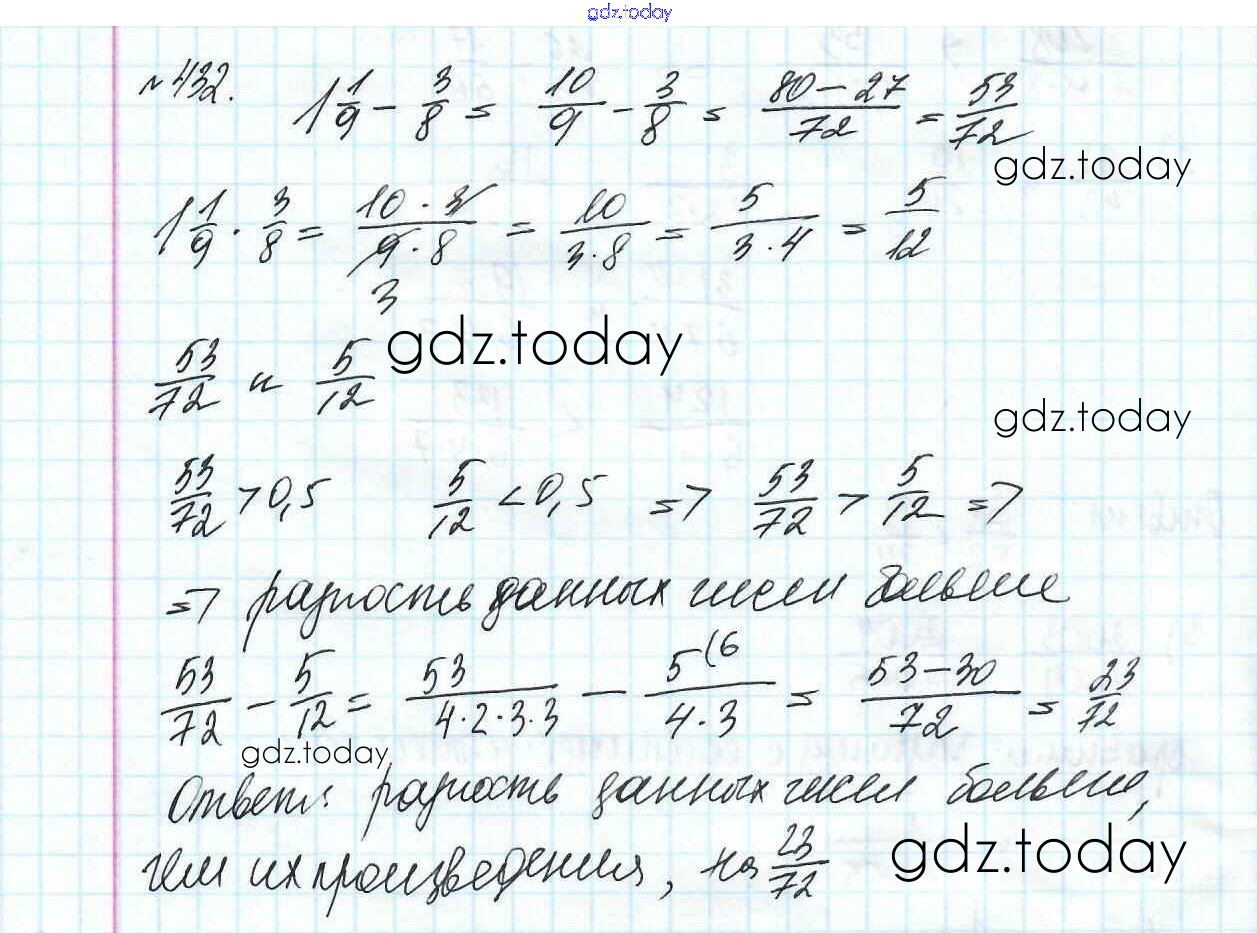 gdz.today
№432. 1 1/9 - 3/8 = 10/9 - 3/8 = (80-27)/72 = 53/72
gdz.today
1 1/9 · 3/8 = (10·3)/(9·8) = 10/(3·8) = 5/(3·4) = 5/12
3
53/72 и 5/12
gdz.today
gdz.today
53/72 > 0,5 5/12 < 0,5 => 53/72 > 5/12 =>
=> разность данных чисел больше
53/72 - 5/12 = 53/(4·2·3·3) - 5(6/(4·3) = (53-30)/72 = 23/72
gdz.today
Ответ: разность данных чисел больше,
чем их произведения, на 23/72
gdz.today